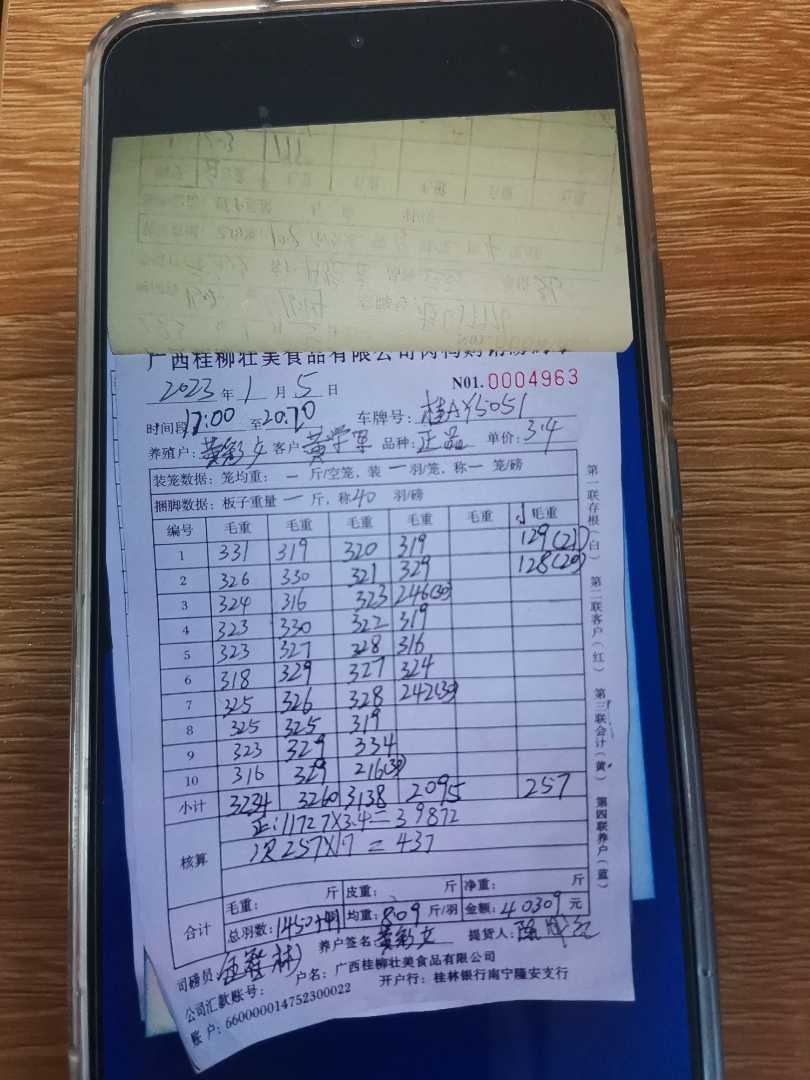 广西桂柳壮美食品有限公司肉鸭购销
2023年1月5日 N01.0004963
时间段17:00至20:70 车牌号:桂AY5051
养殖户: 客户:黄学军 品种:正品 单价:3.4
装笼数据:笼均重:一斤/空笼,装一羽/笼,称一笼/磅
捆脚数据:板子重量一斤,称40羽/磅
编号 毛重 毛重 毛重 毛重 毛重 小毛重
1 331 319 320 319 129(21)
2 326 330 321 329 128(20)
3 324 316 323 246(30)
4 323 330 322 319
5 323 327 328 316
6 318 329 327 324
7 325 326 328 242(30)
8 325 325 319
9 323 329 334
10 316 329 216(30)
小计 3234 3260 3138 2095 257
核算
正:11727×3.4=39872
次257×1.7=437
合计
毛重: 斤 皮重: 斤 净重: 斤
总羽数:1450+41 均重:8.09斤/羽 金额:40309元
养户签名: 提货人:
司磅员:
公司汇款账号: 户名:广西桂柳壮美食品有限公司
账户:660000014752300022 开户行:桂林银行南宁隆安支行
第一联存根(白) 第二联客户(红) 第三联会计(黄) 第四联养户(蓝)